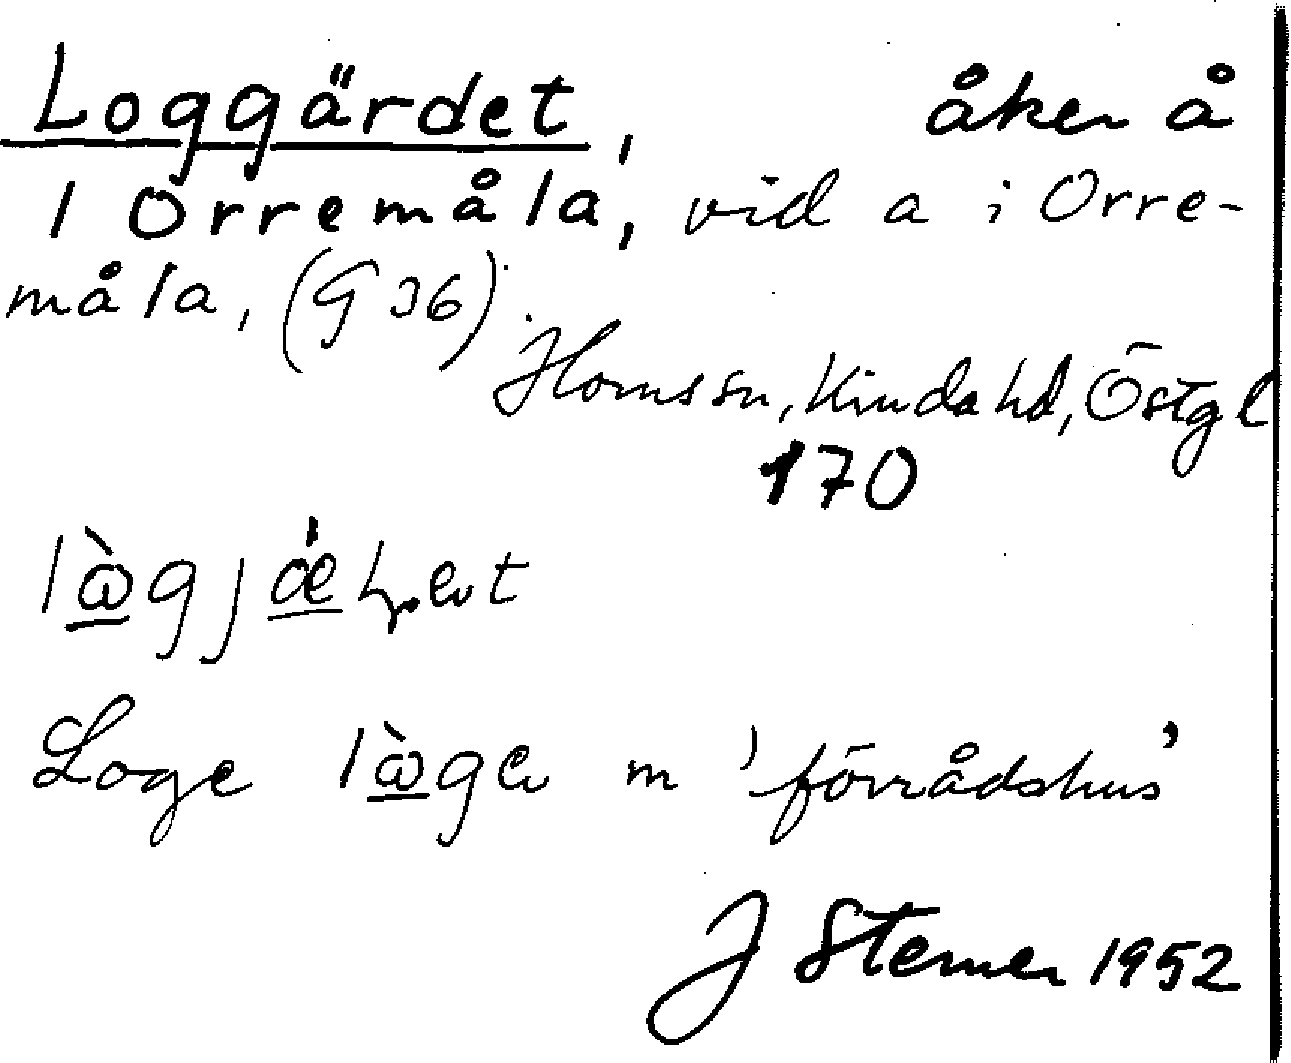 Loggärdet, åker å
1 Orremåla, vid a i Orre-
måla, (G 36).
Horns sn, Kinda hd, Östgl
170
Loge m 'förrådshus'
J Sterner 1952